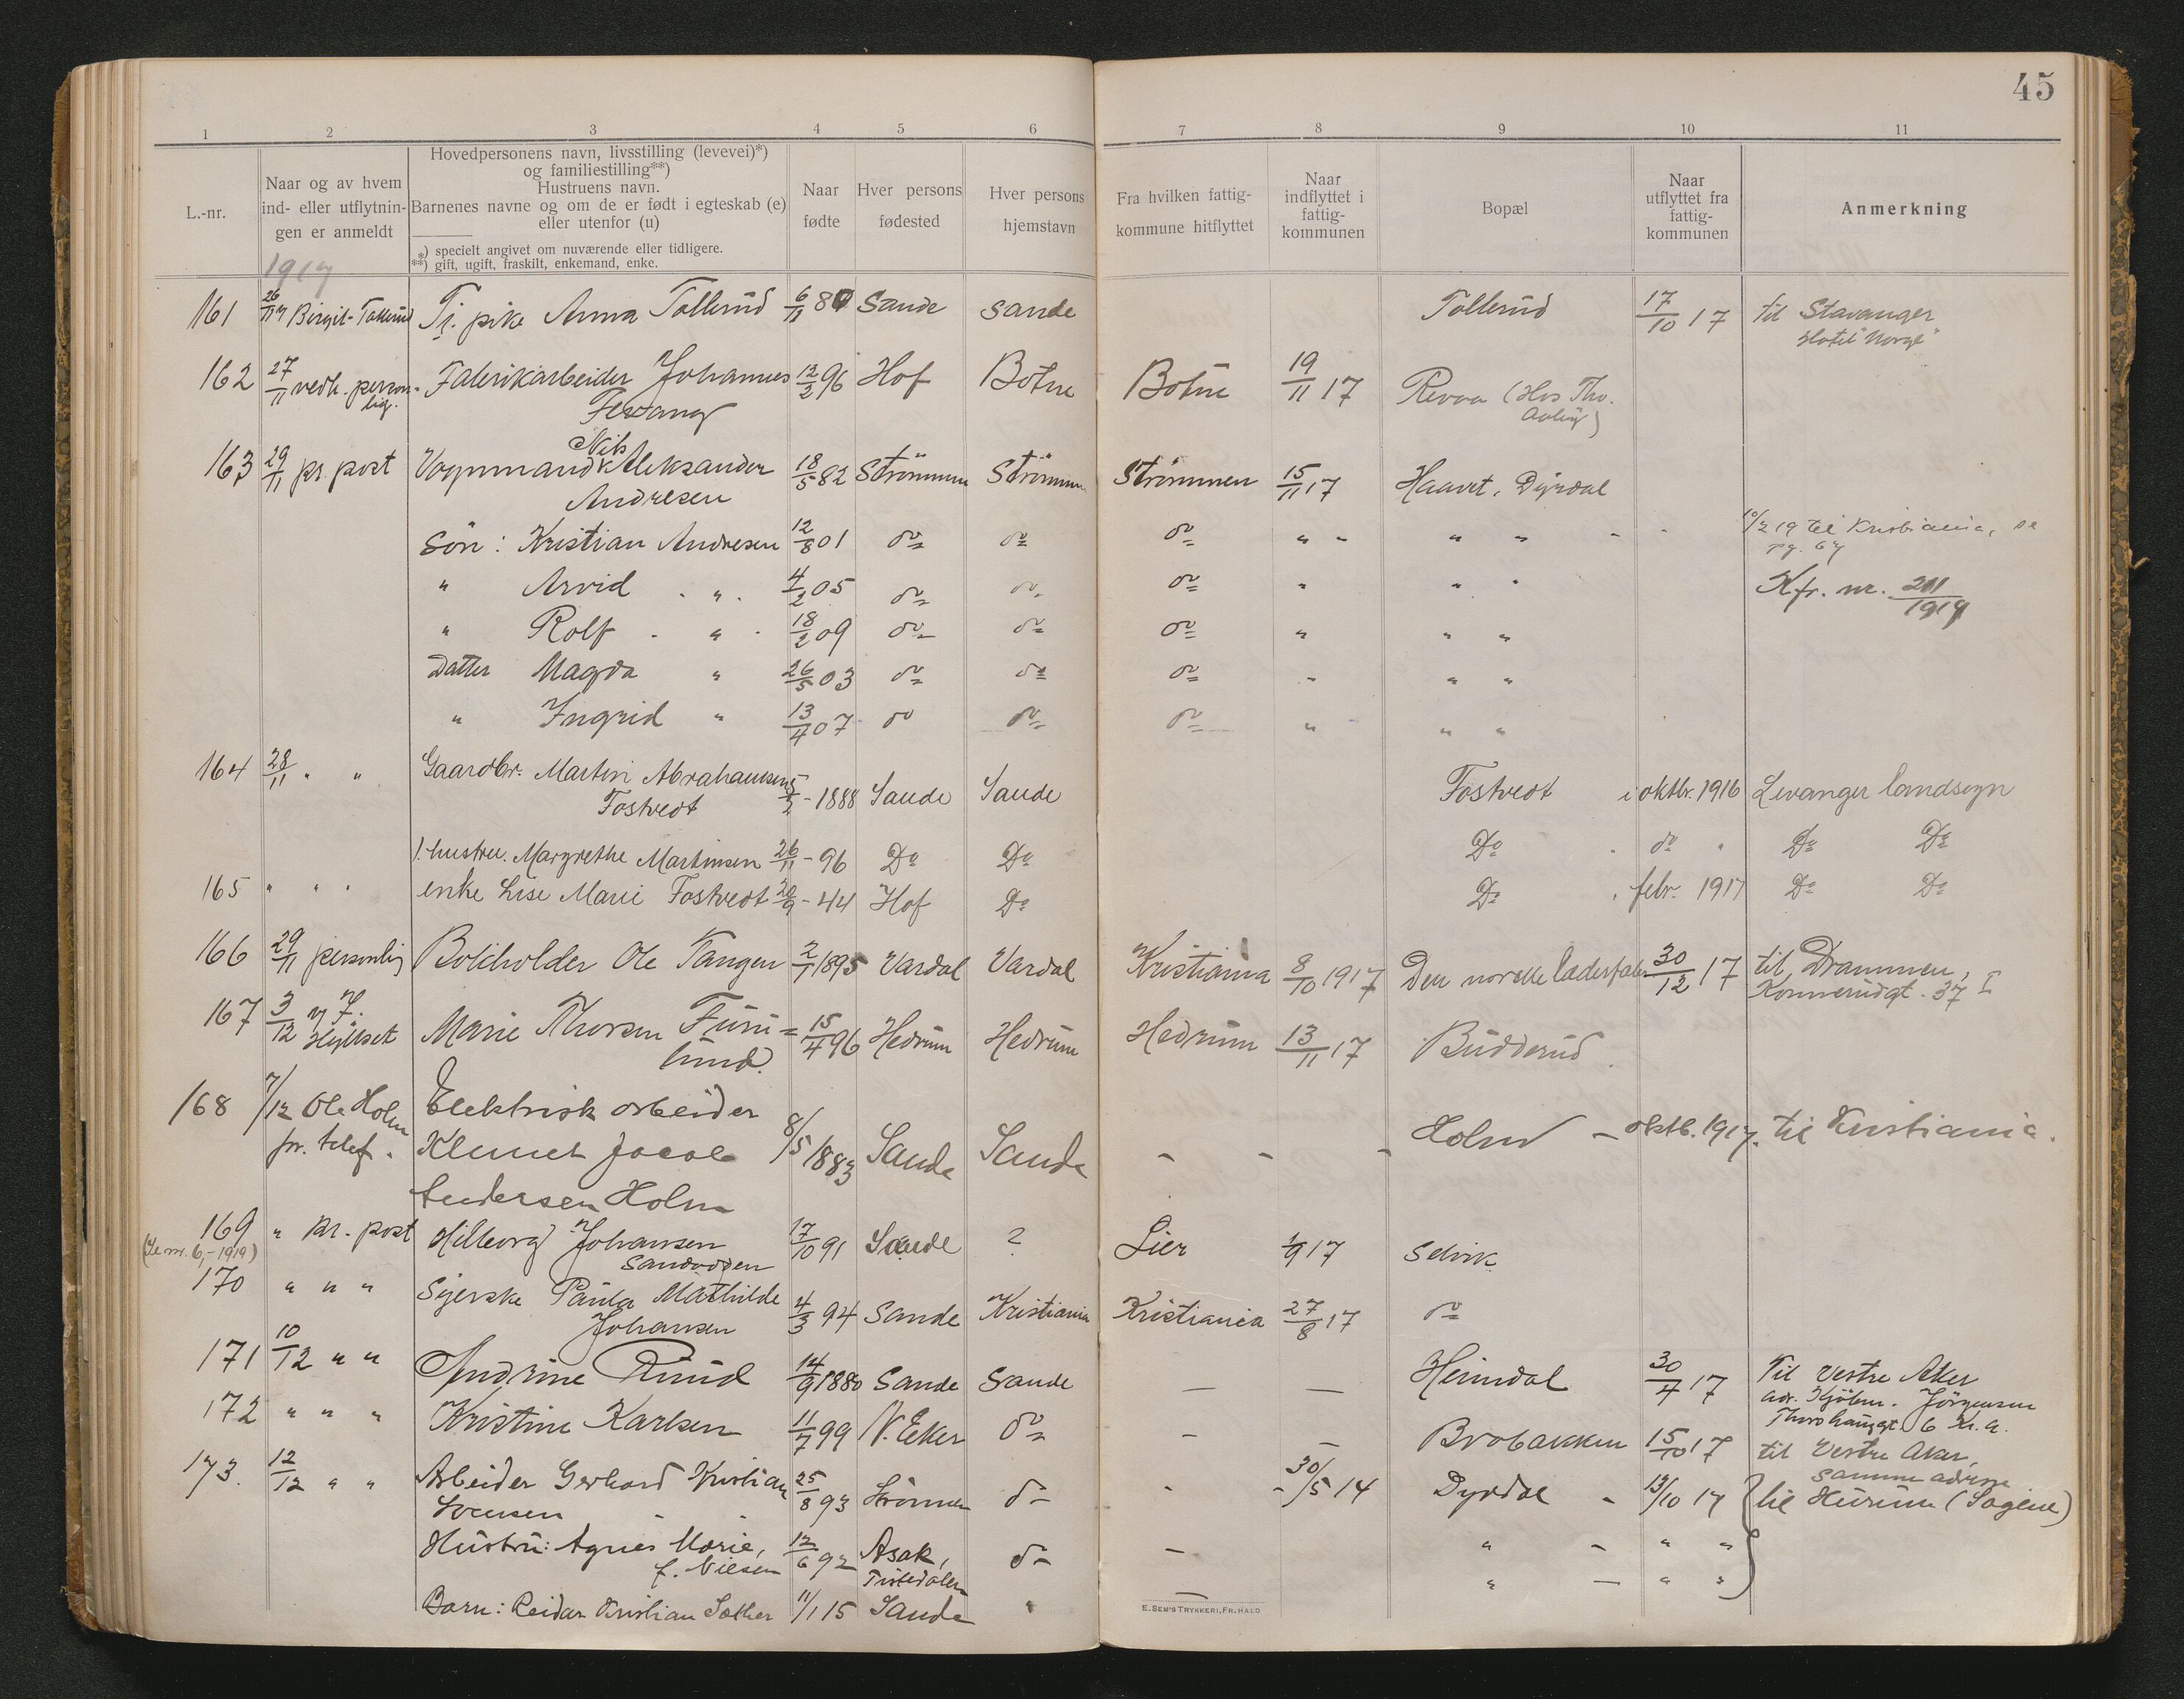 45
1 2 3 4 5 6 7 8 9 10 11
L.-nr.
Naar og av hvem
ind- eller utflytnin-
gen er anmeldt
Hovedpersonens navn, livsstilling (levevei)*)
og familiestilling**)
Hustruens navn.
Barnenes navne og om de er født i egteskab (e)
eller utenfor (u)
*) specielt angivet om nuværende eller tidligere.
**) gift, ugift, fraskilt, enkemand, enke.
Naar
fødte
Hver persons
fødested
Hver persons
hjemstavn
Fra hvilken fattig-
kommune hitflyttet
Naar
indflyttet i
fattig-
kommunen
Bopæl
Naar
utflyttet fra
fattig-
kommunen
Anmerkning
1917
161 26/11 17 Birgit Tollerud Tj. pike Anna Tollerud 6/11 80 Sande Sande Tollerud 17/10 17 til Stavanger
Hotel "Norge"
162 27/11 vedk. person- Fabrikarbeider Johannes 12/2 96 Hof Botne Botne 19/11 17 Revaa (Hos Tho.
lig. Fevang
163 29/11 pr. post Vognmand Nils Aleksander 18/5 82 Strömmen Strömmen Strömmen 15/11 17 Haavet, Dyrdal
Andresen
Sön: Kristian Andresen 12/8 01 do do do " " " " 10/2 19 til Kristiania, se
pg. 67
" Arvid " 4/2 05 do do do " " " Kfr. nr. 211/1919
" Rolf " 18/2 09 do do do " " "
Datter Magda " 26/5 03 do do do " " "
" Ingrid " 13/4 07 do do do " " "
164 28/11 " " Gaardbr. Martin Abrahamsen 5/2 - 1888 Sande Sande Fostvedt i oktbr. 1916 Levanger landsogn
Fostvedt
1. hustru. Margrethe Martinsen 26/11 - 96 Do Do Do do " Do Do
165 " " " enke Lise Marie Fostvedt 20/9 - 44 Hof Do Do febr. 1917 Do Do
166 29/11 personlig Bokholder Ole Tangen 2/1 1895 Vardal Vardal Kristiania 8/10 1917 Den norske læderfabr. 30/12 17 til Drammen,
Konnerudgt. 37 I
167 3/12 Marie Thorsen Furu= 15/4 96 Hedrum Hedrum Hedrum 13/11 17 Budderud
lund.
168 7/12 Ole Holm Elektrisk arbeider
pr. telef. Klemet Jacob 8/5 1883 Sande Sande - - - Holm - oktb. 1917. til Kristiania.
Andersen Holm
169 " pr. post Hilborg Johansen 17/10 91 Sande ? Lier 1/9 17 Selvik
(Se nr. 6, - 1919) Sandodden
170 " " " Syerske Paula Mathilde 4/3 94 Sande Kristiania Kristiania 27/8 17 do
Johansen
171 10/12 " " Andrine Ruud 14/9 1880 Sande Sande — — Heimdal 30/4 17 Til Vestre Aker
adr. Kjöbm. Jörgensen
6 Kr.a.
172 " " " Kristine Karlsen 11/7 99 N. Eker do - — Brobakken 15/10 17 til Vestre Aker,
samme adresse
173. 12/12 " " Arbeider Gerhard Kristian 25/8 93 Strömmen do - - 30/5 14 Dyrdal - 13/10 17 til Hurum (Sagene)
Hustru: Agnes Marie, 12/6 92 Asak, do — " - " "
f. Nilsen Tistedalen
Barn: Reidar Kristian Sother 11/1 15 Sande " — " — " "
E. SEM'S TRYKKERI, FR.HALD